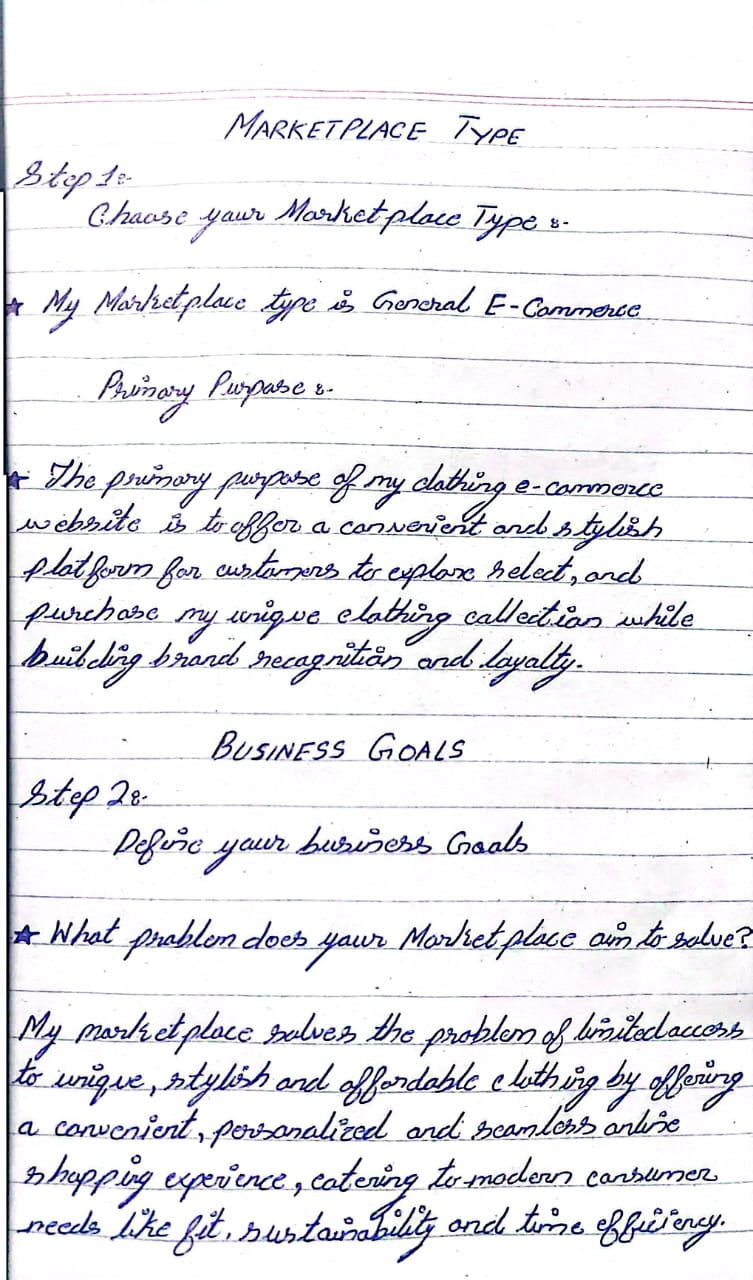 MARKETPLACE TYPE
Step 1:-
Choose your Marketplace Type :-
★ My Marketplace type is General E-Commerce
Primary Purpose :-
★ The primary purpose of my clothing e-commerce
website is to offer a convenient and stylish
platform for customers to explore select, and
purchase my unique clothing collection while
building brand recognition and loyalty.
BUSINESS GOALS
Step 2:-
Define your business Goals
★ What problem does your Marketplace aim to solve?
My marketplace solves the problem of limited access
to unique, stylish and affordable clothing by offering
a convenient, personalized and seamless online
shopping experience, catering to modern consumer
needs like fit, sustainability and time efficiency.